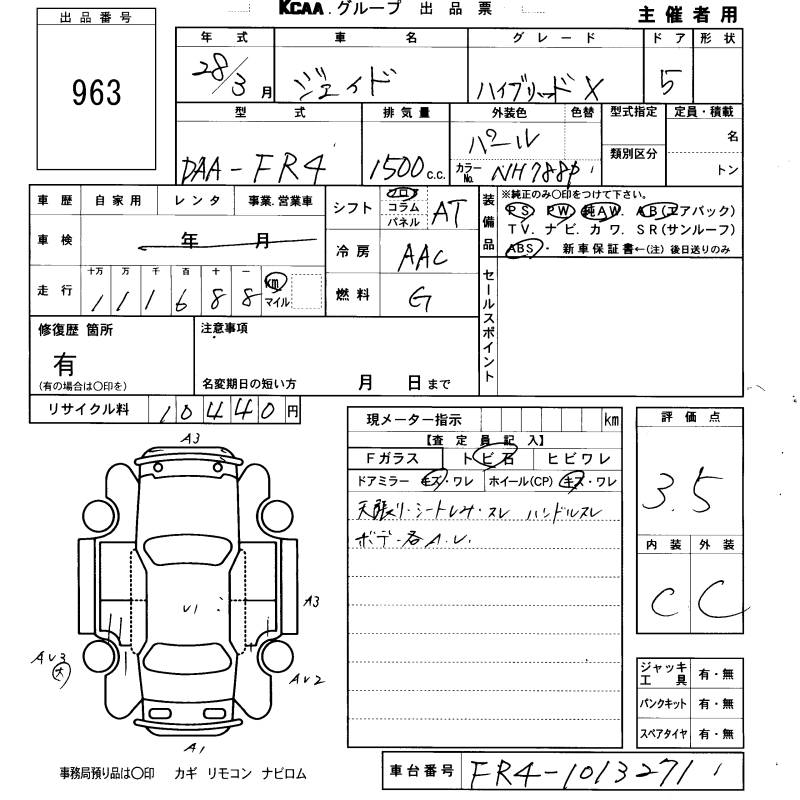 KCAA.グループ 出品票
主催者用
出品番号
963
年式 車名 グレード ドア 形状
28/3月 ジェイド ハイブリッドX 5
型式 排気量 外装色 色替 型式指定 定員・積載
DAA-FR4 1500c.c. パール 名
カラーNo. NH788P 類別区分 トン
車歴 自家用 レンタ 事業.営業車
車検 年 月
走行 十万 万 千 百 十 一
111688 km マイル
シフト フロア コラム パネル AT
冷房 AAC
燃料 G
装備品 ※純正のみ○印をつけて下さい。
PS. PW. 純AW. AB(エアバック)
TV. ナビ. カワ. SR(サンルーフ)
ABS・ 新車保証書←(注)後日送りのみ
セールスポイント
修復歴 箇所
有
(有の場合は○印を)
注意事項
名変期日の短い方 月 日まで
リサイクル料 10440円
現メーター指示 km
【査定員記入】
Fガラス トビ石 ヒビワレ
ドアミラー キズ・ワレ ホイール(CP) キズ・ワレ
天張り・シートレサ・スレ ハンドルスレ
ボデー各A.U.
評価点
3.5
内装 外装
C C
A3
U1
A3
AU3
大
AU2
A1
ジャッキ工具 有・無
パンクキット 有・無
スペアタイヤ 有・無
事務局預り品は○印 カギ リモコン ナビロム
車台番号 FR4-1013271